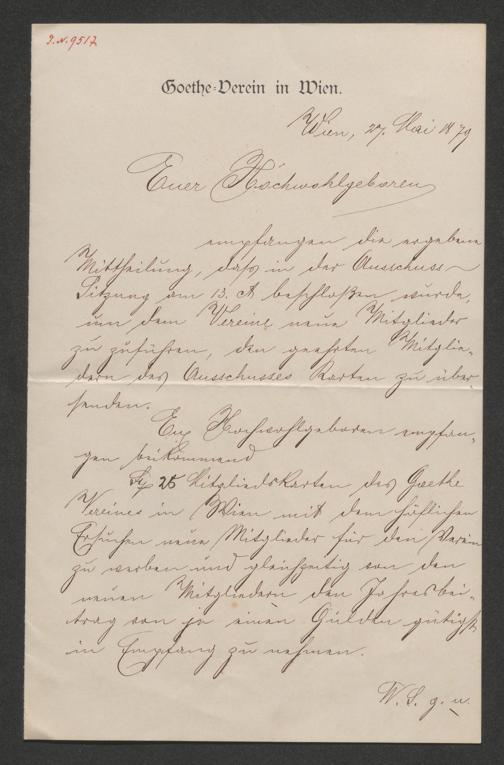 J.N. 9517
Goethe-Verein in Wien.
Wien, 27. Mai 1879
Euer Hochwohlgeboren
empfangen die ergebene
Mittheilung, daß in der Ausschuss-
Sitzung am 13. beschloßen wurde,
um dem Vereine neue Mitglieder
zu zuführen, den geehrten Mitglie-
dern des Ausschusses Karten zu über-
senden.
Eur Hochwohlgeboren empfan-
gen beikommend
25 Mitgliedskarten des Goethe
Vereines in Wien mit dem höflichen
Ersuchen neue Mitglieder für den Verein
zu werben und gleichzeitig von den
neuen Mitgliedern den Jahresbei-
trag von je einen Gulden gütigst
in Empfang zu nehmen.
W. S. g. u.